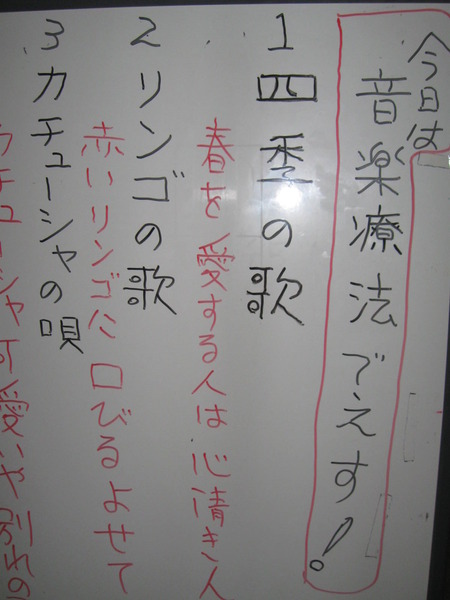 今日は
音楽療法でえす！
1 四季の歌
春を愛する人は心清き人
2 リンゴの歌
赤いリンゴに口びるよせて
3 カチューシャの唄
カチューシャ可愛いや別れの